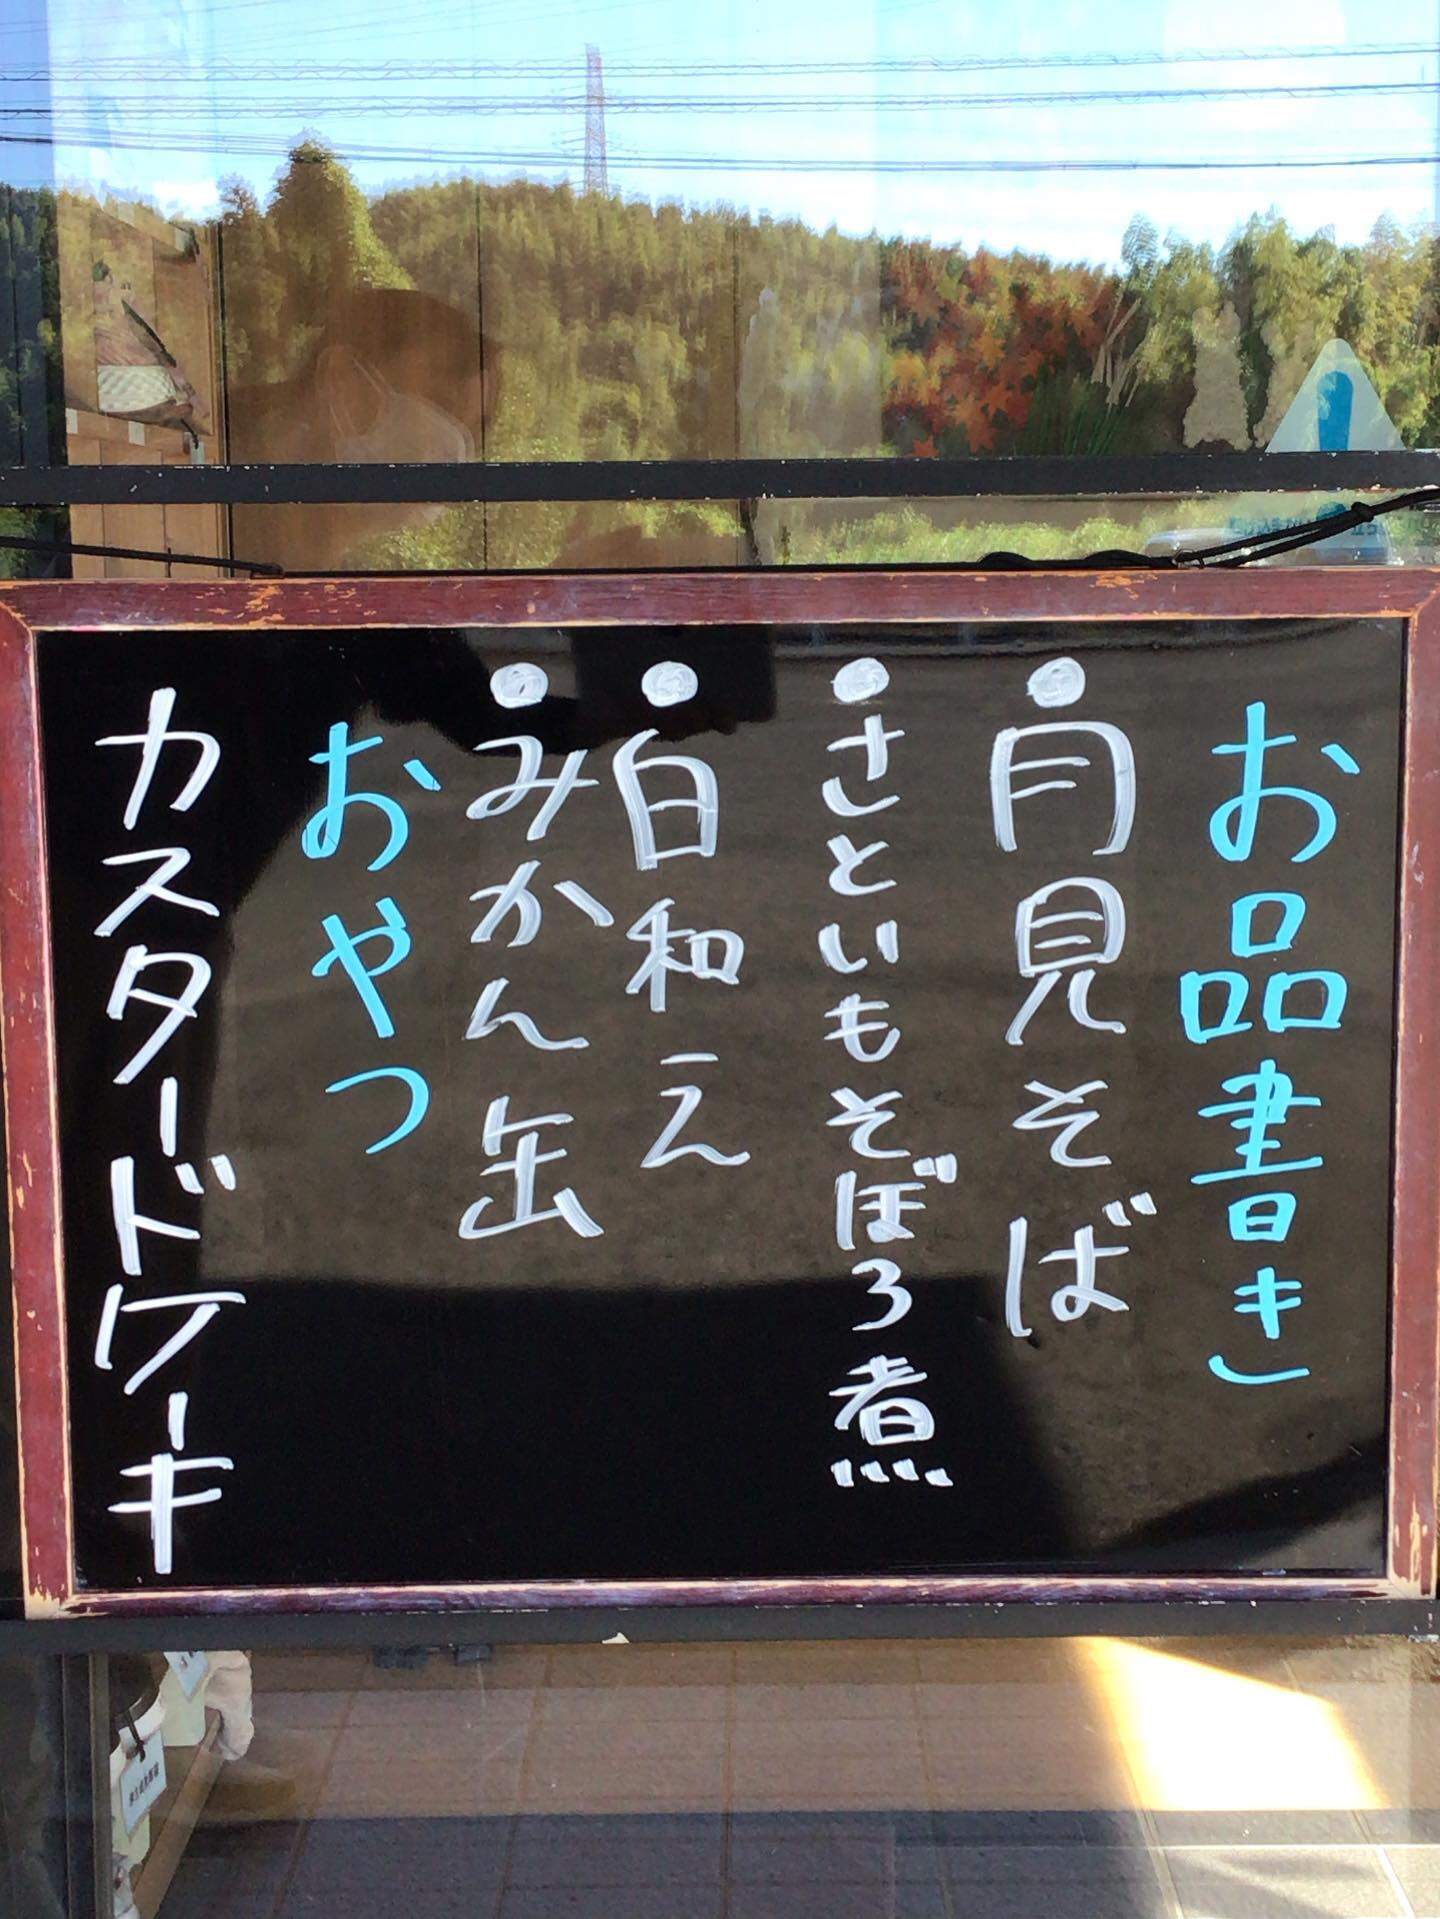 お品書き
・月見そば
・さといもそぼろ煮
・白和え
・みかん缶
おやつ
カスタードケーキ